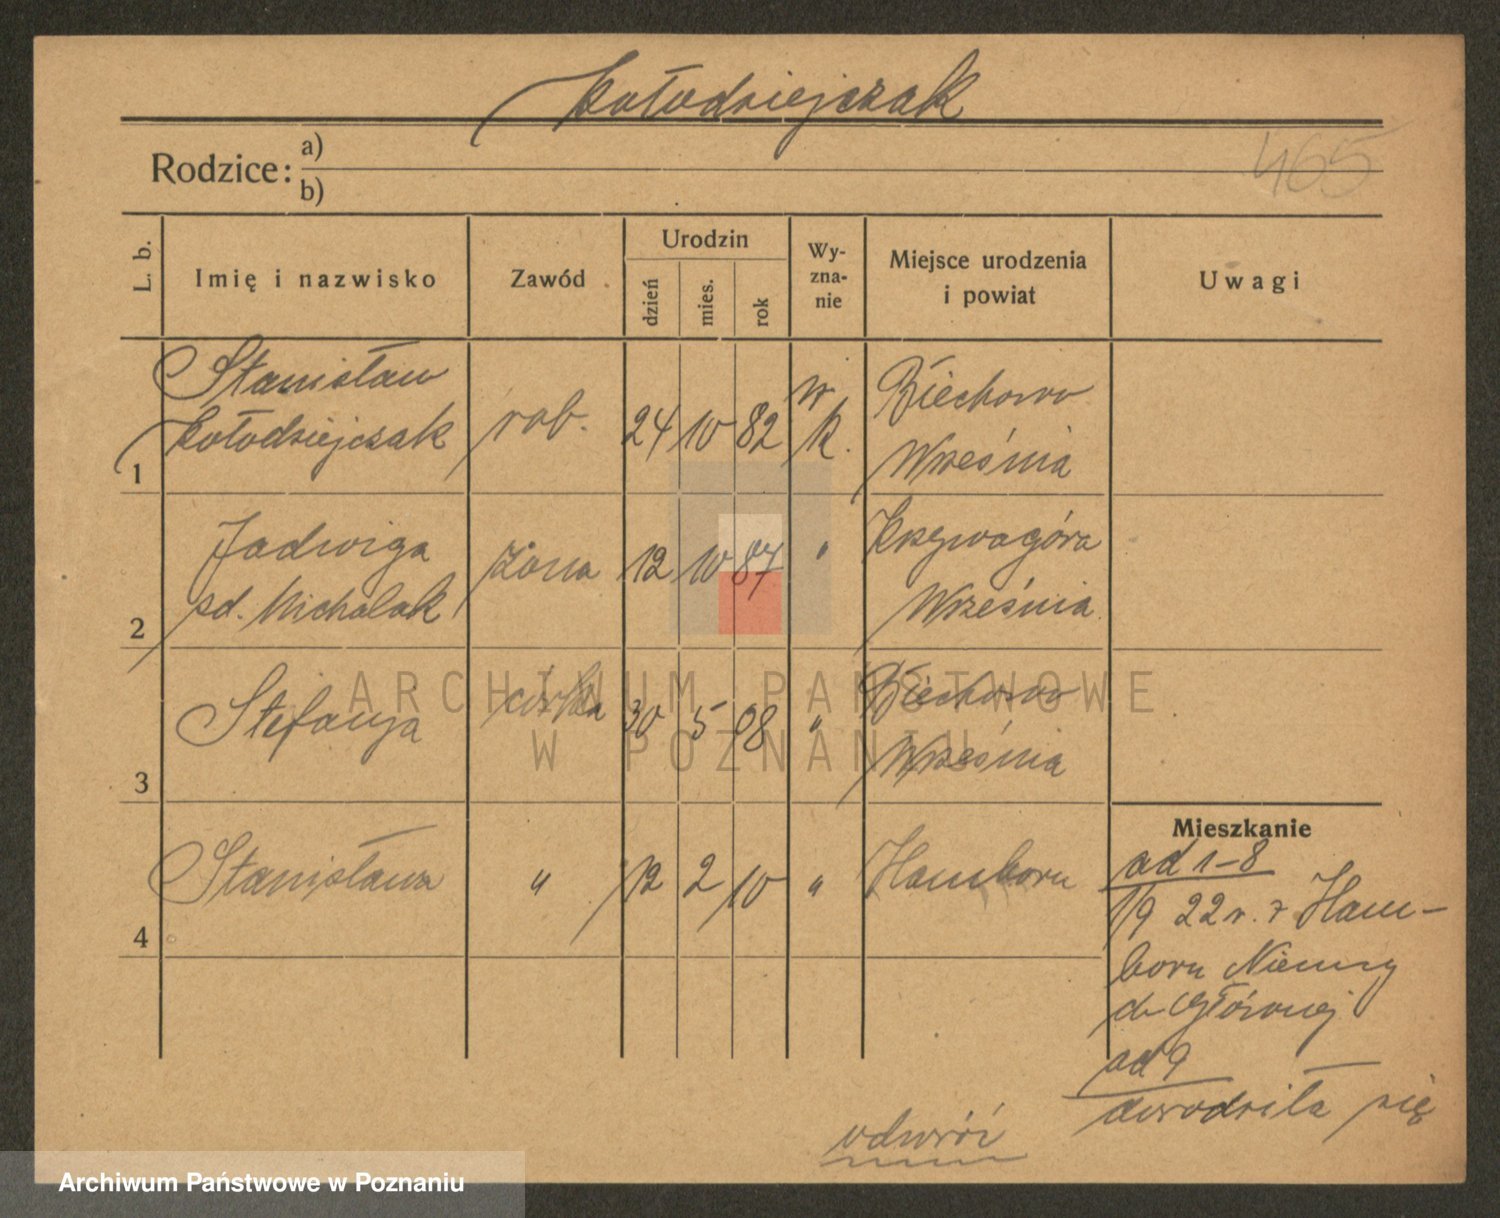 Kołodziejczak
465
Rodzice: a)
b)
L. b.
Imię i nazwisko
Zawód
Urodzin
dzień
mies.
rok
Wy-
zna-
nie
Miejsce urodzenia
i powiat
Uwagi
1
Stanisław
Kołodziejczak
rob.
24 10 82
k.
Biechowo
Września
2
Jadwiga
zd. Michalak
żona
12 10 87
"
Krzywagóra
Września
3
Stefanja
córka
30 5 08
"
Biechowo
Września
4
Stanisława
"
12 2 10
"
Hamborn
Mieszkanie
ad 1-8
1/9 22 r. z Ham-
born Niemcy
do Głównej
ad 9
dorodziła się
odwróć
ARCHIWUM PAŃSTWOWE
W POZNANIU
Archiwum Państwowe w Poznaniu